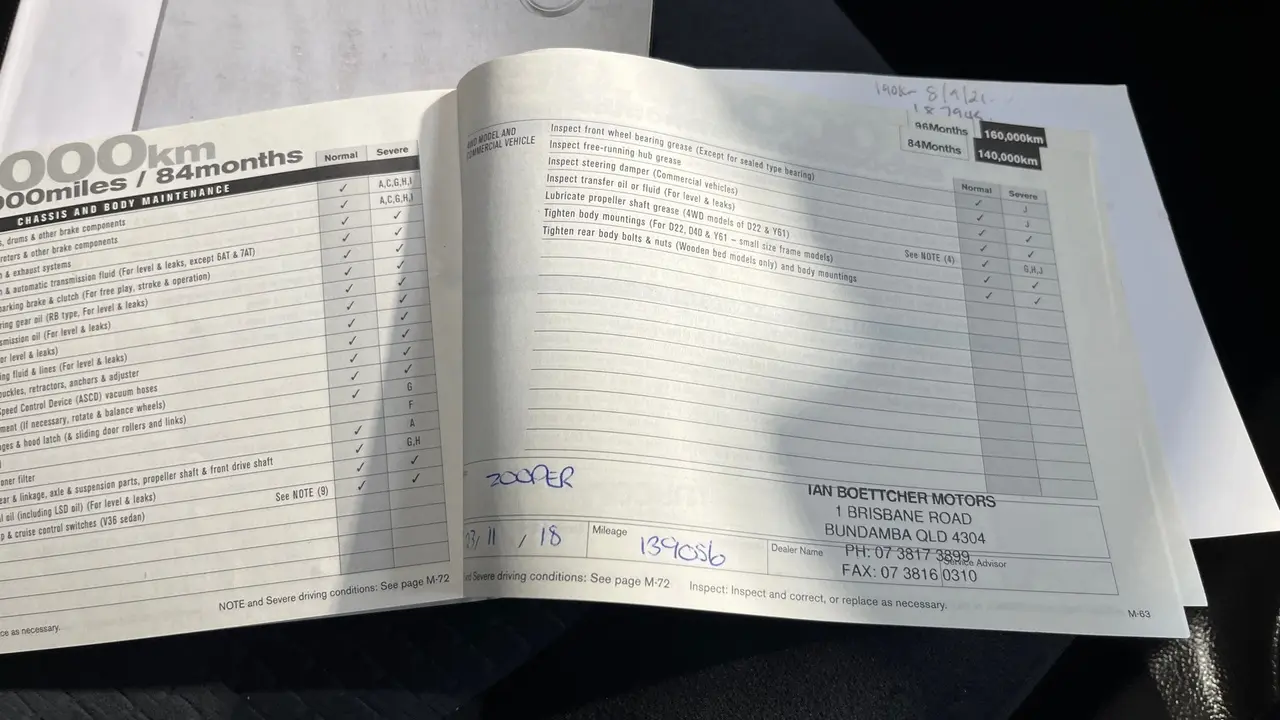 000km
000miles / 84months
Normal Severe
CHASSIS AND BODY MAINTENANCE
, drums & other brake components ✓ A,C,G,H,I
rotors & other brake components ✓ A,C,G,H,I
& exhaust systems ✓ ✓
& automatic transmission fluid (For level & leaks, except 6AT & 7AT) ✓ ✓
parking brake & clutch (For free play, stroke & operation) ✓ ✓
ring gear oil (RB type, For level & leaks) ✓ ✓
smission oil (For level & leaks) ✓ ✓
or level & leaks) ✓ ✓
ing fluid & lines (For level & leaks) ✓ ✓
buckles, retractors, anchors & adjuster ✓ ✓
Speed Control Device (ASCD) vacuum hoses ✓ ✓
ment (If necessary, rotate & balance wheels) ✓ G
ges & hood latch (& sliding door rollers and links) F
ner filter ✓ A
ear & linkage, axle & suspension parts, propeller shaft & front drive shaft ✓ G,H
al oil (including LSD oil) (For level & leaks) ✓ ✓
p & cruise control switches (V36 sedan) See NOTE (9) ✓ ✓
NOTE and Severe driving conditions: See page M-72
ce as necessary.
190km 8/9/21
96Months 160,000km
84Months 140,000km
4WD MODEL AND
COMMERCIAL VEHICLE
Normal Severe
Inspect front wheel bearing grease (Except for sealed type bearing) ✓ J
Inspect free-running hub grease ✓ J
Inspect steering damper (Commercial vehicles) ✓ ✓
Inspect transfer oil or fluid (For level & leaks) ✓ ✓
Lubricate propeller shaft grease (4WD models of D22 & Y61) See NOTE (4) ✓ G,H,J
Tighten body mountings (For D22, D40 & Y61 – small size frame models) ✓ ✓
Tighten rear body bolts & nuts (Wooden bed models only) and body mountings ✓ ✓
300PER
23/ 11 / 18
Mileage 139056
Dealer Name
Service Advisor
IAN BOETTCHER MOTORS
1 BRISBANE ROAD
BUNDAMBA QLD 4304
PH: 07 3817 3899
FAX: 07 3816 0310
nd Severe driving conditions: See page M-72 Inspect: Inspect and correct, or replace as necessary.
M-63